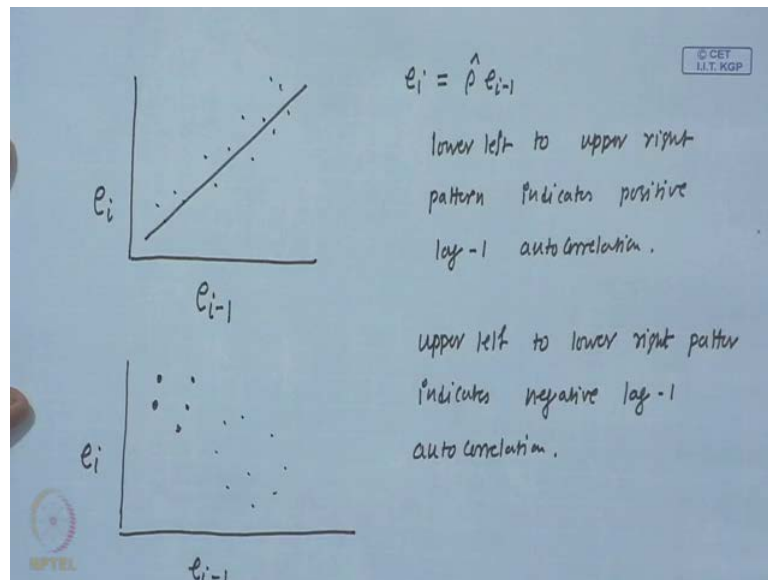 © CET
I.I.T. KGP
eᵢ = ρ̂ eᵢ₋₁
lower left to upper right
pattern indicates positive
lag-1 autocorrelation.
eᵢ
eᵢ₋₁
upper left to lower right patter
indicates negative lag-1
autocorrelation.
eᵢ
eᵢ₋₁
NPTEL